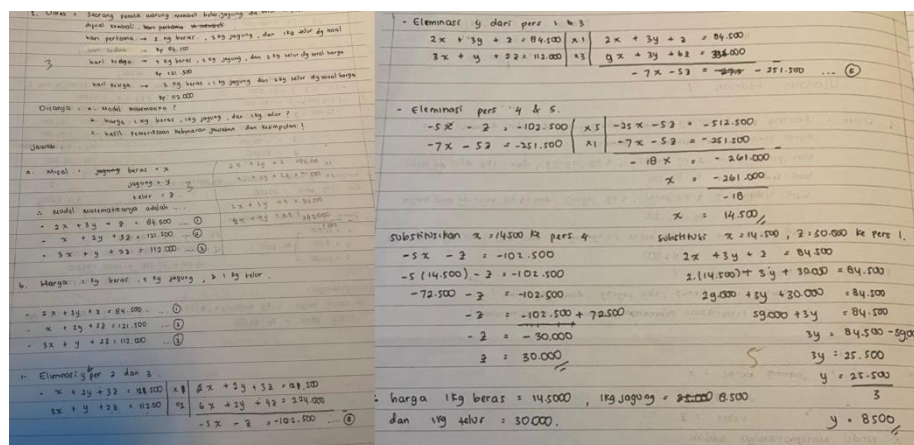 1. Diket = Seorang pemilik warung membeli beras, jagung da
dijual kembali.
hari pertama → 2 kg beras, 3 kg jagung, dan 1 kg telur dg total
Rp 84.500
3
hari kedua → 1 kg beras, 2 kg jagung, dan 3 kg telur dg total harga
Rp 121.500
hari ketiga → 3 kg beras, 1 kg jagung dan 2 kg telur dg total harga
Rp 112.000
Ditanya : a. Model matematika ?
b. harga 1 kg beras, 1 kg jagung, dan 1 kg telur ?
c. hasil pemeriksaan kebenaran jawaban dan kesimpulan !
Jawab :
a. Misal : beras = x
jagung = y
telur = z
3
∴ Model Matematikanya adalah ...
- 2x + 3y + z = 84.500 ... ①
- x + 2y + 3z = 121.500 ... ②
- 3x + y + 2z = 112.000 ... ③
b. Harga 1 kg beras, 1 kg jagung, & 1 kg telur.
- 2x + 3y + z = 84.500 ... ①
- x + 2y + 3z = 121.500 ... ②
- 3x + y + 2z = 112.000 ... ③
1. Eliminasi y per 2 dan 3.
- x + 2y + 3z = 121.500 | x + 2y + 3z = 121.500
3x + y + 2z = 11200 | x2 | 6x + 2y + 4z = 224.000
-5x - z = -102.500 ... ④
- Eleminasi y dari pers 1 & 3
2x + 3y + z = 84.500 | x1 | 2x + 3y + z = 84.500
3x + y + 2z = 112.000 | x3 | 9x + 3y + 6z = 336.000
-7x - 5z = - 251.500 ... ⑤
- Eleminasi pers 4 & 5.
-5x - z = -102.500 | x5 | -25x - 5z = -512.500
-7x - 5z = -251.500 | x1 | -7x - 5z = -251.500
- 18 x = - 261.000
x = - 261.000
- 18
x = 14.500
substitusikan x = 14500 ke pers 4.
-5x - z = -102.500
-5 (14.500) - z = -102.500
-72.500 - z = -102.500
- z = -102.500 + 72.500
- z = - 30.000
z = 30.000
substitusi x = 14.500, z = 30.000 ke pers 1.
2x + 3y + z = 84.500
2.(14.500) + 3y + 30.000 = 84.500
29.000 + 3y + 30.000 = 84.500
59.000 + 3y = 84.500
3y = 84.500 - 59.00
5
3y = 25.500
y = 25.500
3
y = 8500
∴ harga 1 kg beras = 14.5000, 1 kg jagung = 8.500
dan 1 kg telur = 30.000.